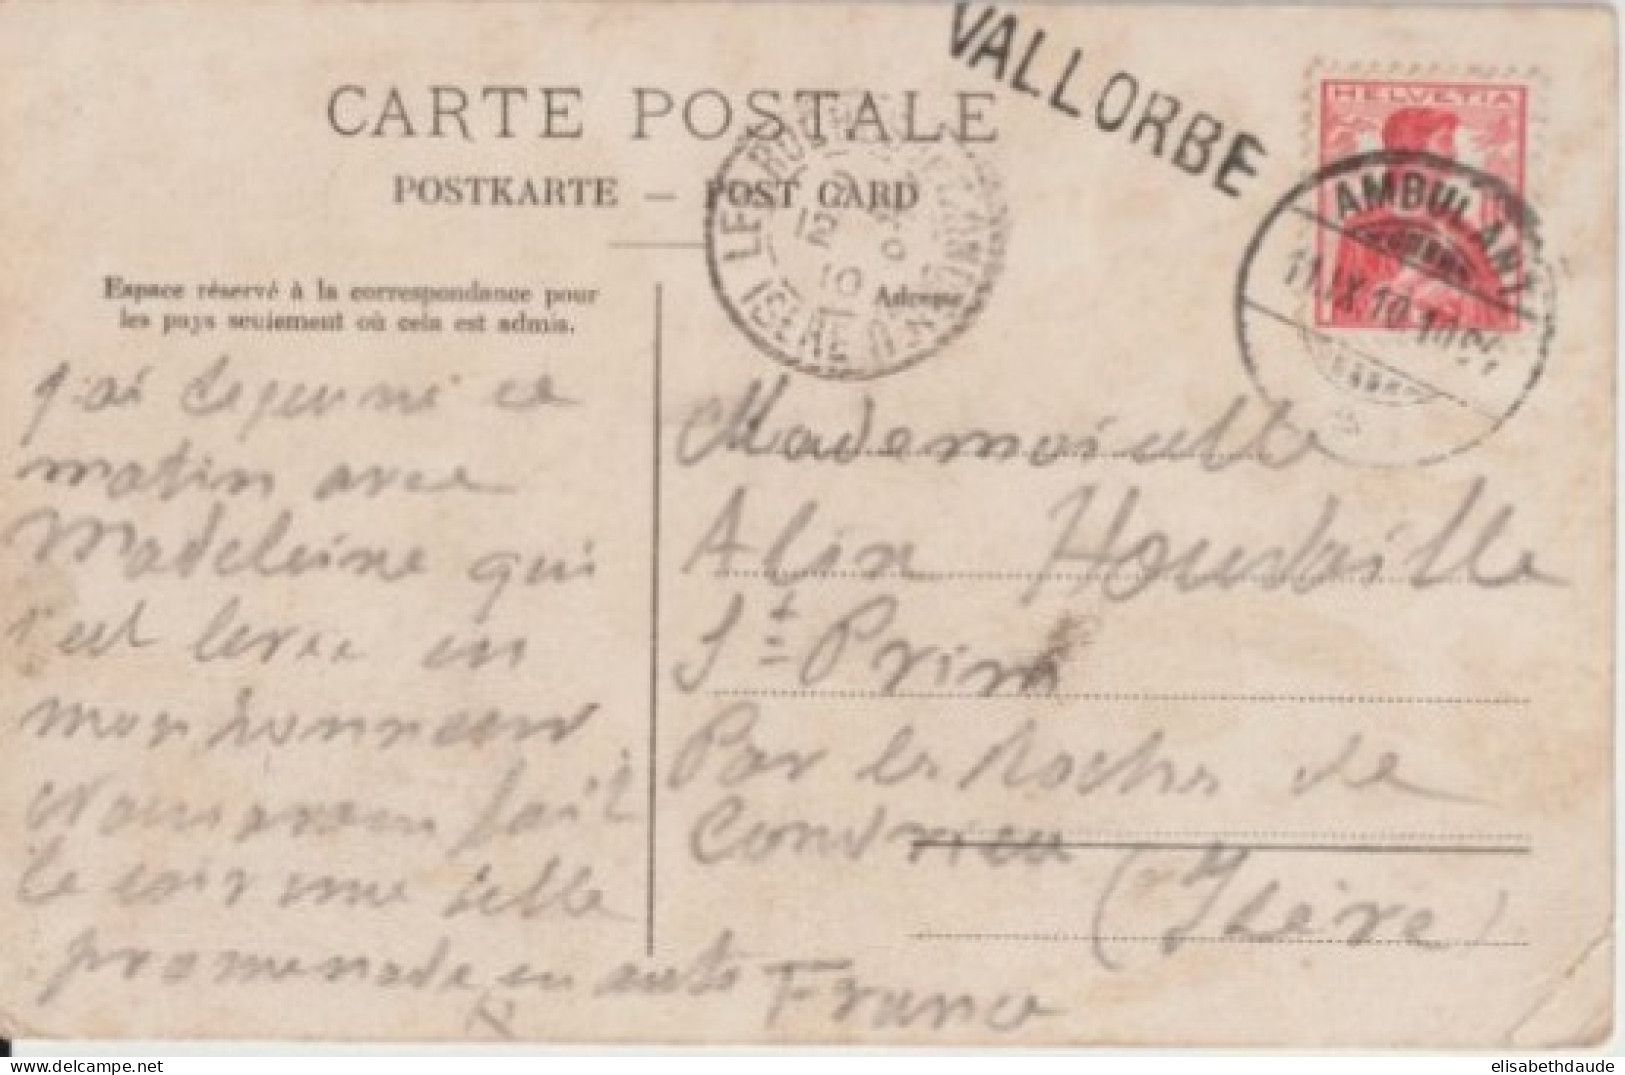 VALLORBE
HELVETIA
CARTE POSTALE
POSTKARTE — POST CARD
AMBULANT
11.IX.10.10
ISERE
12
10
Espace réservé à la correspondance pour
les pays seulement où cela est admis.
Adresse
j'ai dejeuné ce
matin avec
Madeleine qui
s'est levée en
mon honneur
Nous avons fait
le soir une belle
promenade en auto
Mademoiselle
Alix Houdaille
St Prim
Par les Roches de
Condrieu
(Isère)
France
elisabethdaude